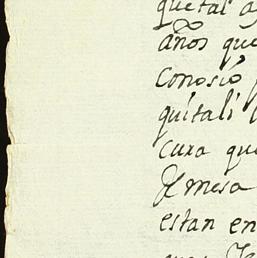 que tal a
años que
conosió
quitali
cura que
Mesa
estan en